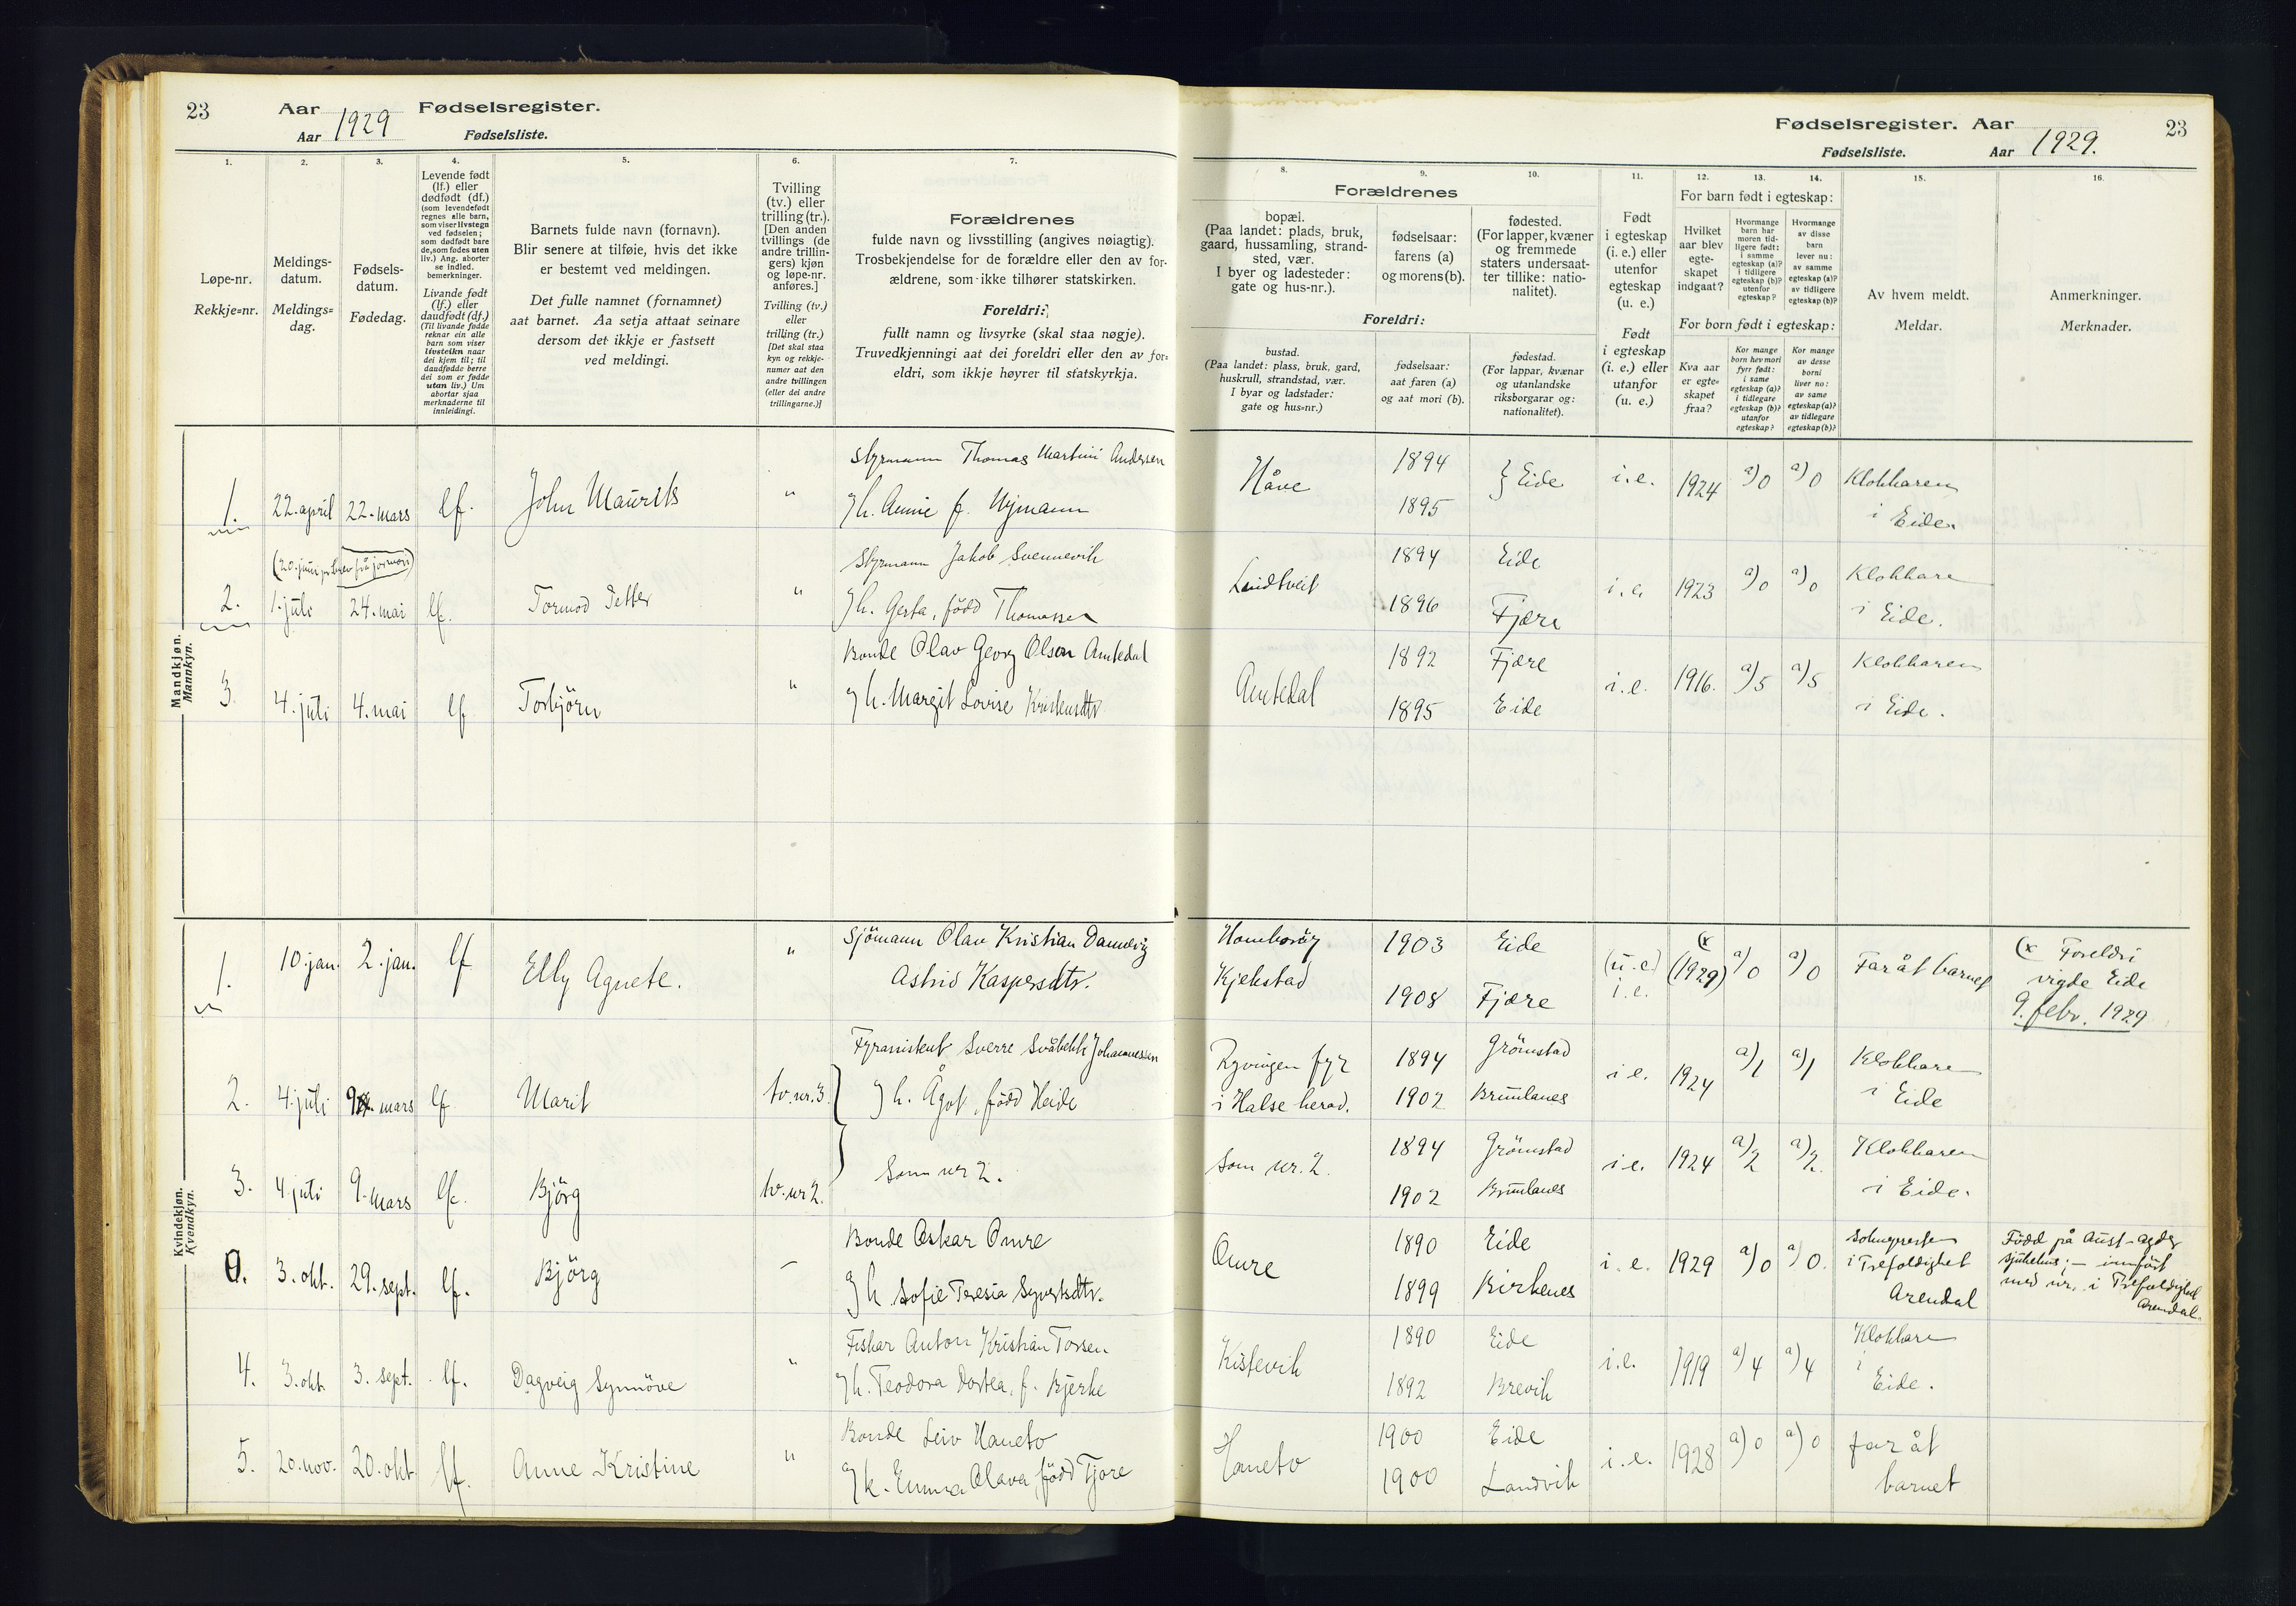 23
Aar 1929 Fødselsregister.
Aar Fødselsliste.
1.
2.
3.
4.
5.
6.
7.
Løpe-nr.
Rekkje=nr.
Meldings-
datum.
Meldings=
dag.
Fødsels-
datum.
Fødedag.
Levende født
(lf.) eller
dødfødt (df.)
(som levendefødt
regnes alle barn,
som viser livstegn
ved fødselen;
som dødfødt bare
de, som fødes uten
liv.) Ang. aborter
se indled.
bemerkninger.
Livande født
(lf.) eller
daudfødt (df.)
(Til livande fødde
reknar ein alle
barn som viser
livsteikn naar
dei kjem til; til
daudfødde berre
dei som er fødde
utan liv.) Um
abortar sjaa
merknaderne til
innleidingi.
Barnets fulde navn (fornavn).
Blir senere at tilføie, hvis det ikke
er bestemt ved meldingen.
Det fulle namnet (fornamnet)
aat barnet. Aa setja attaat seinare
dersom det ikkje er fastsett
ved meldingi.
Tvilling
(tv.) eller
trilling (tr.).
[Den anden
tvillings (de
andre trillin-
gers) kjøn
og løpe-nr.
anføres.]
Tvilling (tv.)
eller
trilling (tr.)
[Det skal staa
kyn og rekkje-
numer aat den
andre tvillingen
(eller dei andre
trillingarne.)]
Forældrenes
fulde navn og livsstilling (angives nøiagtig).
Trosbekjendelse for de forældre eller den av for-
ældrene, som ikke tilhører statskirken.
Foreldri:
fullt namn og livsyrke (skal staa nøgje).
Truvedkjenningi aat dei foreldri eller den av for=
eldri, som ikkje høyrer til statskyrkja.
Mandkjøn.
Mannkyn.
1. 22. april 22. mars lf. John Maurits "
Styrmann Thomas Martini Andersen
og h. Annie f. Nymann
(20. juni pr. brev frå jormori)
2. 1. juli 24. mai lf. Tormod Petter "
Styrmann Jakob Svennevik
og h. Gerta, född Thomassen
3. 4. juli 4. mai lf Torbjörn "
Bonde Olav Georg Olson Amtedal
og h. Margit Lovise Kristensdtr
Kvindekjøn.
Kvendkyn.
1. 10. jan. 2. jan. lf Elly Agnete. "
Sjömann Olav Kristian Dannevig
Astrid Kaspersdtr.
2. 4. juli 9. mars lf Marit tv. nr. 3.
Fyrassistent Sverre Svåbekk Johannessen
og h. Ågot, född Heide
3. 4. juli 9. mars lf. Björg tv. nr 2.
Som nr 2.
0. 3. okt. 29. sept. lf. Björg –
Bonde Oskar Omre
og h. Sofie Teresia Syvertsdtr.
4. 3. okt. 3. sept. lf. Dagveig Synnöve "
Fiskar Anton Kristian Torsen
og h. Teodora Dortea, f. Bjerke
5. 20. nov. 20. okt lf. Anne Kristine "
Bonde Leiv Haneto
og k. Emma Olava, född Tjore
Fødselsregister. Aar 1929.
Fødselsliste. Aar
23
8.
9.
10.
11.
12.
13.
14.
15.
16.
Forældrenes
bopæl.
(Paa landet: plads, bruk,
gaard, hussamling, strand-
sted, vær.
I byer og ladesteder:
gate og hus-nr.).
fødselsaar:
farens (a)
og morens (b).
fødested.
(For lapper, kvæner
og fremmede
staters undersaat-
ter tillike: natio-
nalitet).
Foreldri:
bustad.
(Paa landet: plass, bruk, gard,
huskrull, strandstad, vær.
I byar og ladstader:
gate og hus=nr.)
fødselsaar:
aat faren (a)
og aat mori (b).
fødestad.
(For lappar, kvænar
og utanlandske
riksborgarar og:
nationalitet).
Født
i egteskap
(i. e.) eller
utenfor
egteskap
(u. e.)
Født
i egteskap
(i. e.) eller
utanfor
(u. e.)
For barn født i egteskap:
Hvilket
aar blev
egte-
skapet
indgaat?
Hvormange
barn har
moren tid-
ligere født:
i samme
egteskap (a)?
i tidligere
egteskap (b)?
utenfor
egteskap?
Hvormange
av disse
barn
lever nu:
av samme
egteskap (a)?
av tidligere
egteskap (b)?
For born født i egteskap:
Kva aar
er egte=
skapet
fraa?
Kor mange
born hev mori
fyrr født:
i same
egteskap (a)?
i tidlegare
egteskap (b)?
utanfor
egteskap?
Kor mange
av desse
borni
liver no:
av same
egteskap (a)?
av tidlegare
egteskap (b)?
Av hvem meldt.
Meldar.
Anmerkninger.
Merknader.
Håve 1894 } Eide i.e. 1924 a) 0 a) 0 Klokkaren
1895 i Eide.
Lindtveit 1894 Eide i.e. 1923 a) 0 a) 0 Klokkare
1896 Fjære i Eide.
Amtedal 1892 Fjære i.e. 1916. a) 5 a) 5 Klokkaren
1895 Eide i Eide.
Homborg 1903 Eide (u.e.) (x (1929) a) 0 a) 0 Far åt barnet (x Foreldri
Kjekstad 1908 Fjære i.e. vigde Eide
9. febr. 1929
Ryvingen fyr 1894 Grimstad i e. 1924 a) 1 a) 1 Klokkare
i Halse herad. 1902 Brunlanes i Eide
Som nr. 2. 1894 Grimstad i e. 1924 a) 2 a) 2. Klokkaren
1902 Brunlanes i Eide.
Omre 1890 Eide i. e. 1929 a) 0 a) 0. Soknepresten Född på Aust-Agder
1899 Birkenes i Trefoldighet sjukehus; – innfört
Arendal med nr. i Trefoldighet
Arendal.
Kistevik 1890 Eide i.e. 1919 a) 4 a) 4 Klokkare
1892 Brevik i
Eide.
Haneto 1900 Eide i. e. 1928 a) 0 a) 0 far åt
1900 Landvik barnet